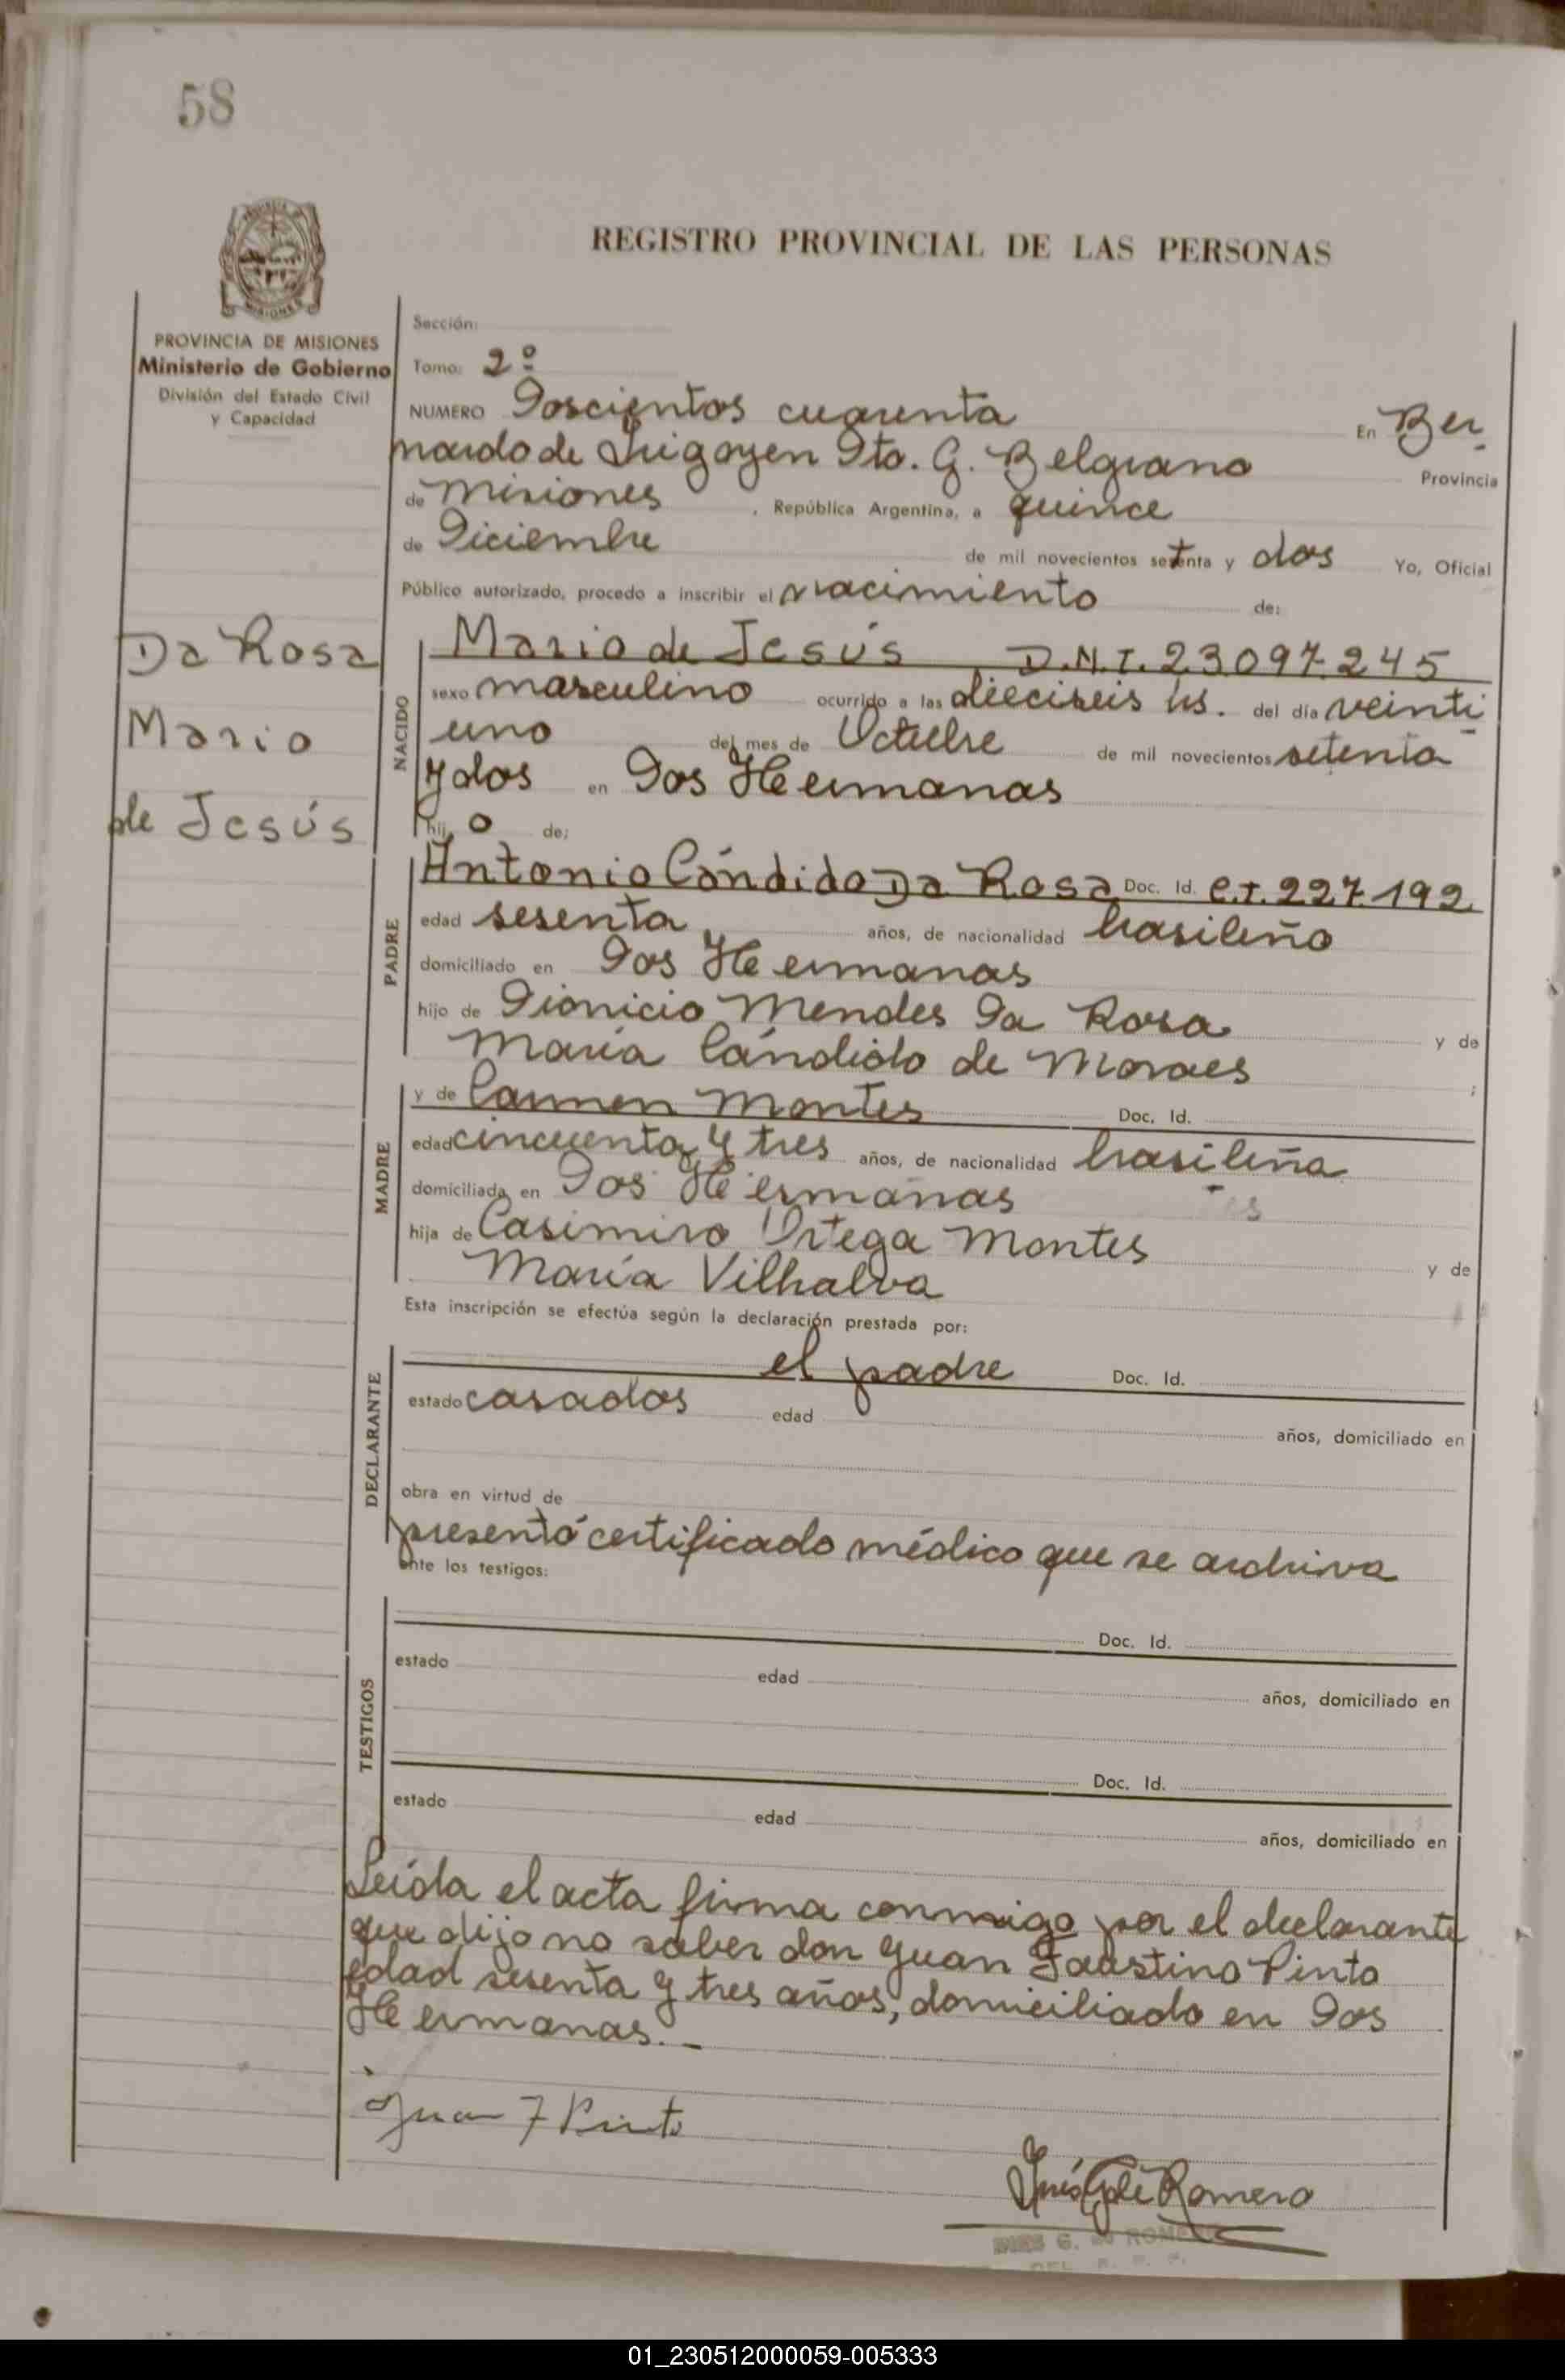 58
REGISTRO PROVINCIAL DE LAS PERSONAS
MISIONES
PROVINCIA DE MISIONES
Ministerio de Gobierno
División del Estado Civil
y Capacidad
Sección:
Tomo: 2º
NUMERO Doscientos cuarenta En Ber-
nardo de Irigoyen Dto. G. Belgrano Provincia
de Misiones, República Argentina, a quince
de Diciembre de mil novecientos setenta y dos Yo, Oficial
Público autorizado, procedo a inscribir el nacimiento de:
Da Rosa
Mario
de Jesús
NACIDO
Mario de Jesús D.N.I. 23.097.245
sexo masculino ocurrido a las dieciseis hs. del día veinti-
uno del mes de Octubre de mil novecientos setenta
y dos en Dos Hermanas
hijo de:
PADRE
Antonio Cándido Da Rosa Doc. Id. C.I. 227.192
edad sesenta años, de nacionalidad brasileño
domiciliado en Dos Hermanas
hijo de Dionicio Mendes Da Rosa y de
María Cándido de Moraes ;
MADRE
y de Carmen Montes Doc. Id.
edad cincuenta y tres años, de nacionalidad brasileña
domiciliada en Dos Hermanas
hija de Casimiro Ortega Montes y de
María Vilhalva
Esta inscripción se efectúa según la declaración prestada por:
DECLARANTE
el padre Doc. Id.
estado casados edad años, domiciliado en
obra en virtud de
presentó certificado médico que se archiva
ante los testigos:
TESTIGOS
Doc. Id.
estado edad años, domiciliado en
Doc. Id.
estado edad años, domiciliado en
Leída el acta firma conmigo por el declarante
que dijo no saber don Juan Faustino Pinto
edad sesenta y tres años, domiciliado en Dos
Hermanas.-
Juan F Pinto
Inés G de Romero
INES G. de ROMERO
01_230512000059-005333